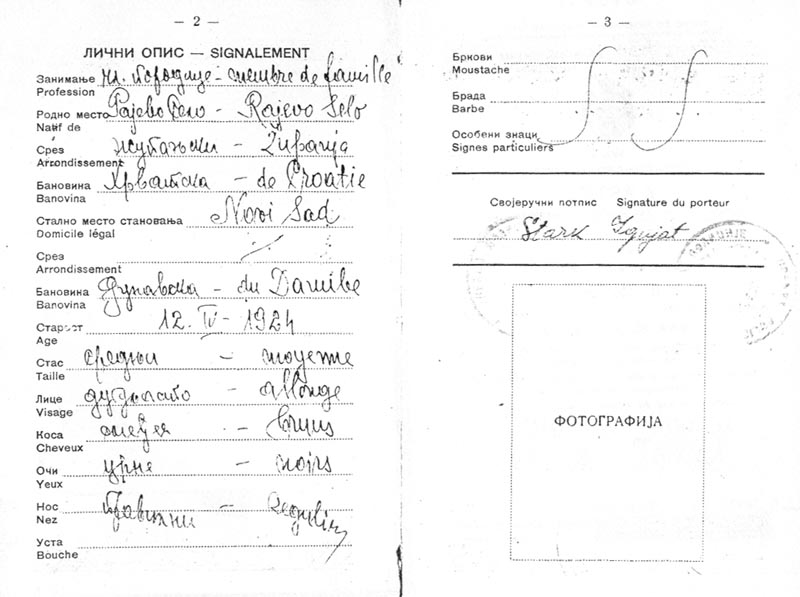 — 2 —
ЛИЧНИ ОПИС — SIGNALEMENT
Занимање чл. породице - membre de famille
Profession
Родно место Рајево Село - Rajevo Selo
Natif de
Срез жупањски - Županja
Arrondissement
Бановина Хрватска - de Croatie
Banovina
Стално место становања Novi Sad
Domicile légal
Срез
Arrondissement
Бановина Дунавска - du Danube
Banovina
Старост 12. IV - 1924
Age
Стас средњи - moyenne
Taille
Лице дугуљасто - allongé
Visage
Коса смеђа - bruns
Cheveux
Очи црне - noirs
Yeux
Нос правилни - Regulier
Nez
Уста
Bouche
— 3 —
Бркови
Moustache
Брада
Barbe
Особени знаци
Signes particuliers
Својеручни потпис Signature du porteur
Stark Ignjat
ФОТОГРАФИЈА